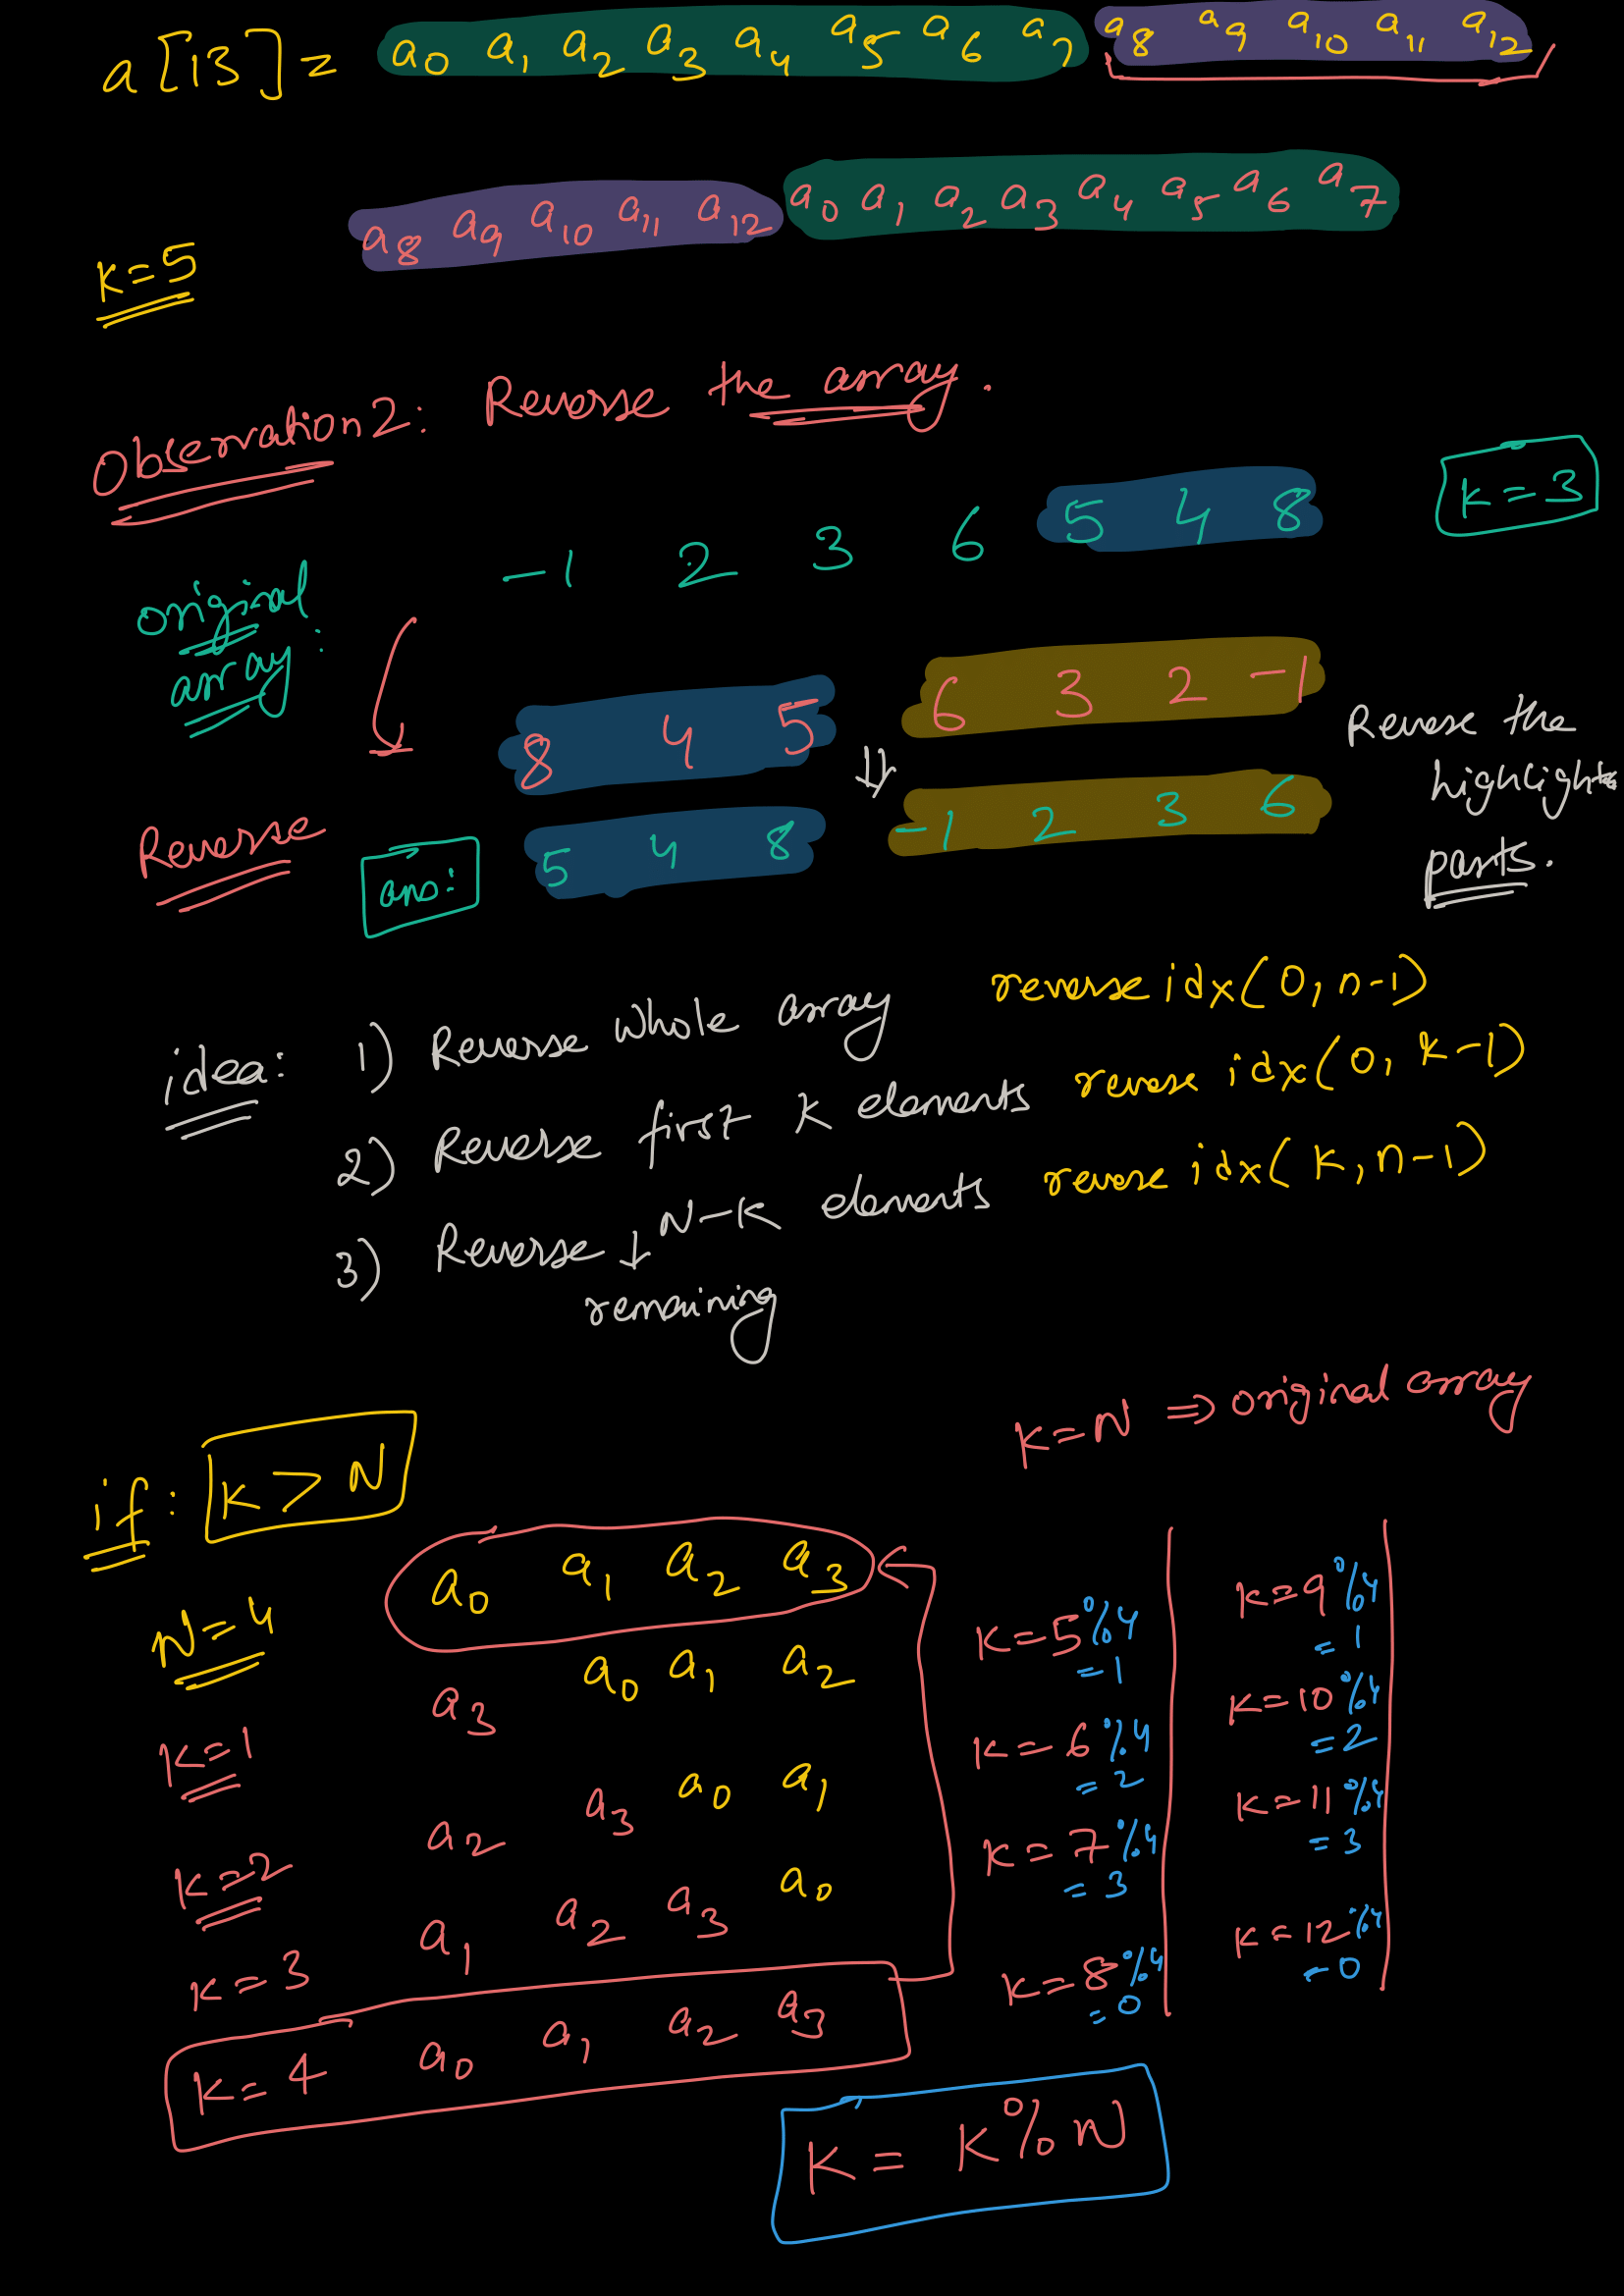 a[13] = a0 a1 a2 a3 a4 a5 a6 a7 a8 a9 a10 a11 a12
a8 a9 a10 a11 a12 a0 a1 a2 a3 a4 a5 a6 a7
k=5
Observation 2: Reverse the array.
k=3
-1 2 3 6 5 4 8
original
array:
8 4 5 6 3 2 -1
Reverse the
highlights
parts.
Reverse
ans: 5 4 8 -1 2 3 6
idea: 1) Reverse whole array reverse idx(0, n-1)
2) Reverse first k elements reverse idx(0, k-1)
3) Reverse ↓ N-k elements reverse idx(k, n-1)
remaining
k=N ⇒ original array
if: k > N
N=4 a0 a1 a2 a3
k=1 a3 a0 a1 a2
k=2 a2 a3 a0 a1
k=3 a1 a2 a3 a0
k=4 a0 a1 a2 a3
k=5%4
=1
k=6%4
=2
k=7%4
=3
k=8%4
=0
k=9%4
=1
k=10%4
=2
k=11%4
=3
k=12%4
=0
k = k%N